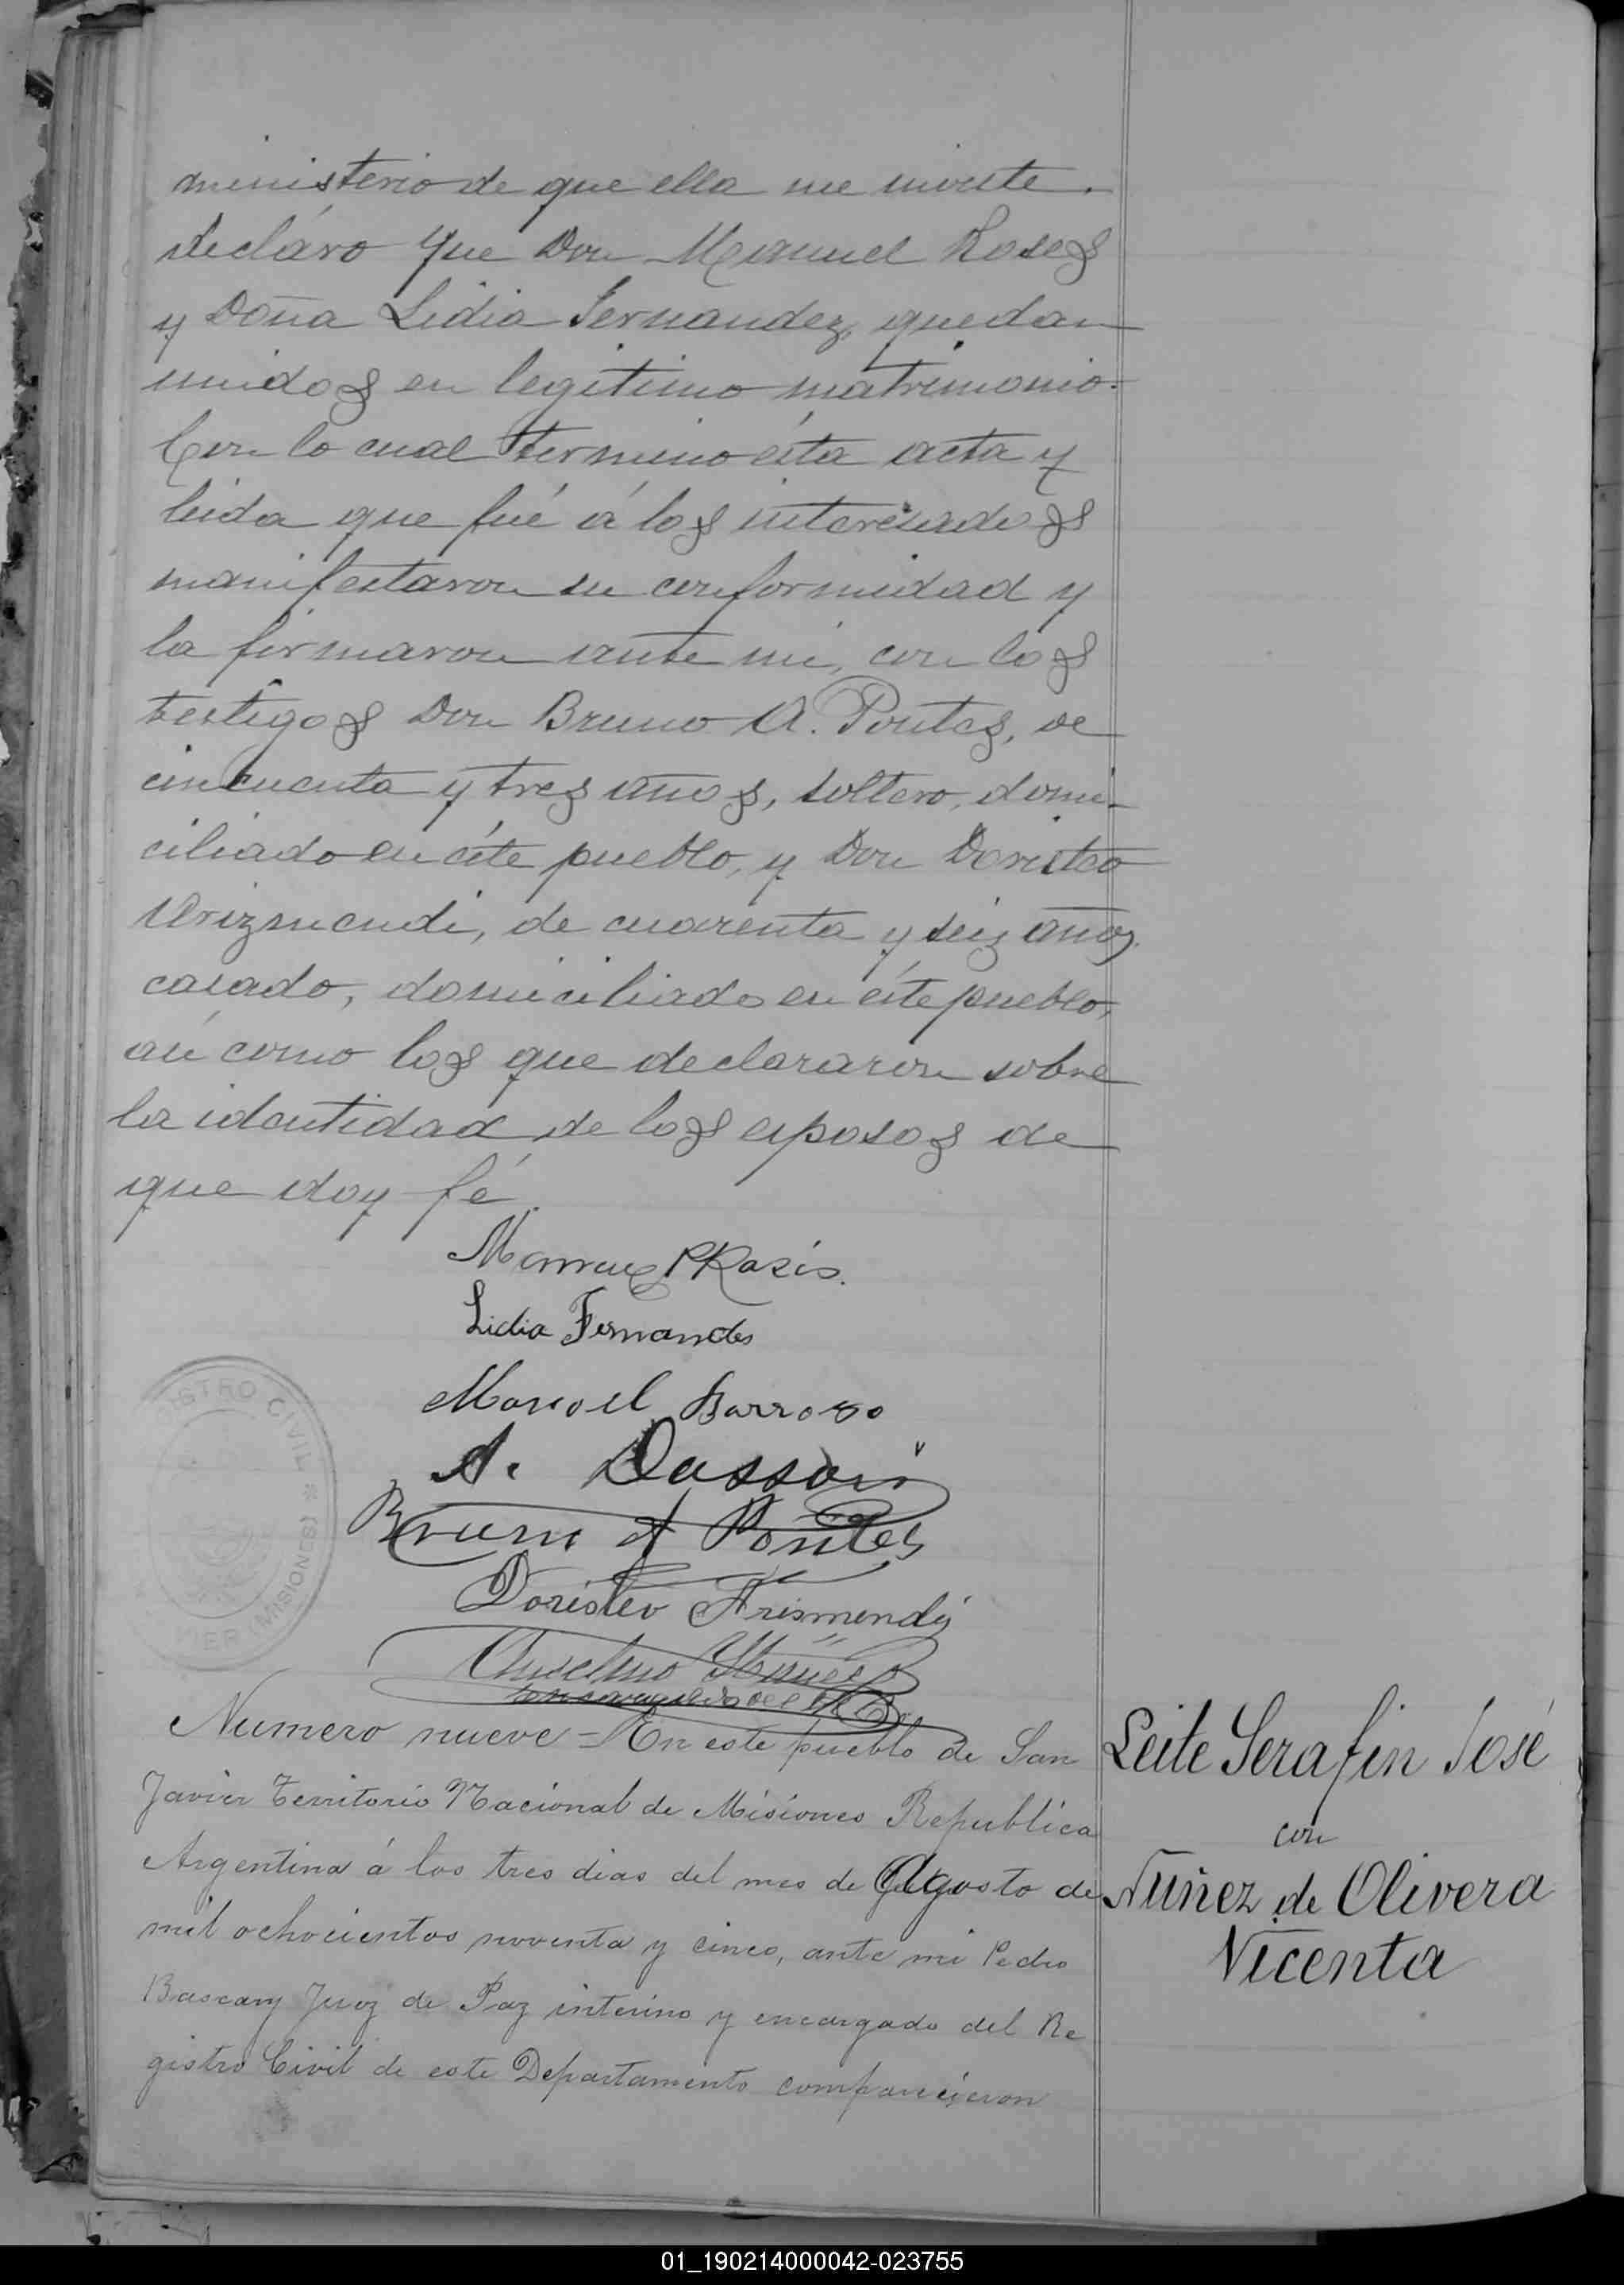 ministerio de que ella me inviste.
declaro que Don Manuel Roses
y Doña Lidia Fernandez, quedan
unidos en legitimo matrimonio.
Con lo cual termino ésta acta y
leida que fué á los interesados
manifestaron su conformidad y
la firmaron ante mi, con los
testigos Don Bruno A. Pontes, de
cincuenta y tres años, soltero, domi-
ciliado en éste pueblo, y Don Doristeo
Arizmendi, de cuarenta y seis años,
casado, domiciliado en éste pueblo,
asi como los que declararon sobre
la identidad de los esposos de
que doy fé.
Lidia Fernandes
Manoel Barrozo
A. Dassoni
Bruno A Pontes
Doristeo Arismendi
Anselmo Ybañez
REGISTRO CIVIL * (MISIONES)
VIER
Numero nueve = En este pueblo de San
Javier Territorio Nacional de Misiones Republica
Argentina á los tres dias del mes de Agosto de
mil ochocientos noventa y cinco, ante mi Pedro
Bascary Juez de Paz interino y encargado del Re
gistro Civil de este Departamento comparecieron
Leite Serafin José
con
Nuñez de Olivera
Vicenta
01_190214000042-023755